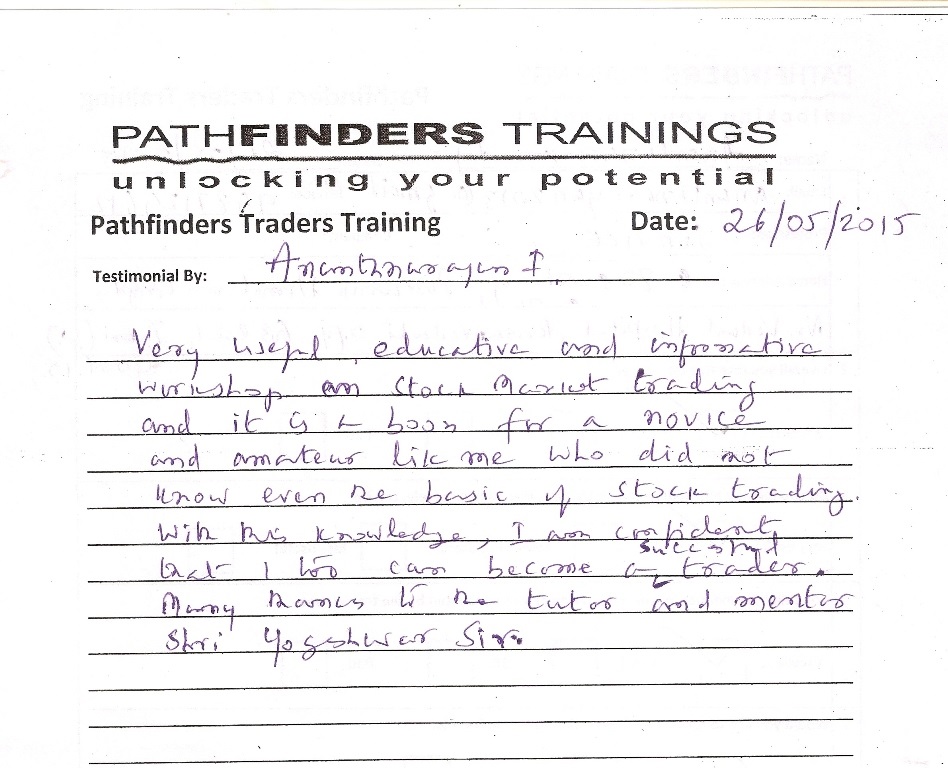 PATHFINDERS TRAININGS
unlocking your potential
Pathfinders Traders Training Date: 26/05/2015
Testimonial By: Ananthnarayan I
Very useful, educative and informative
workshop on stock market trading
and it is a boon for a novice
and amateur like me who did not
know even the basic of stock trading.
With this knowledge, I am confident
that I too can become a successful trader.
Many thanks to the tutor and mentor
Shri Yogeshwar Sir.